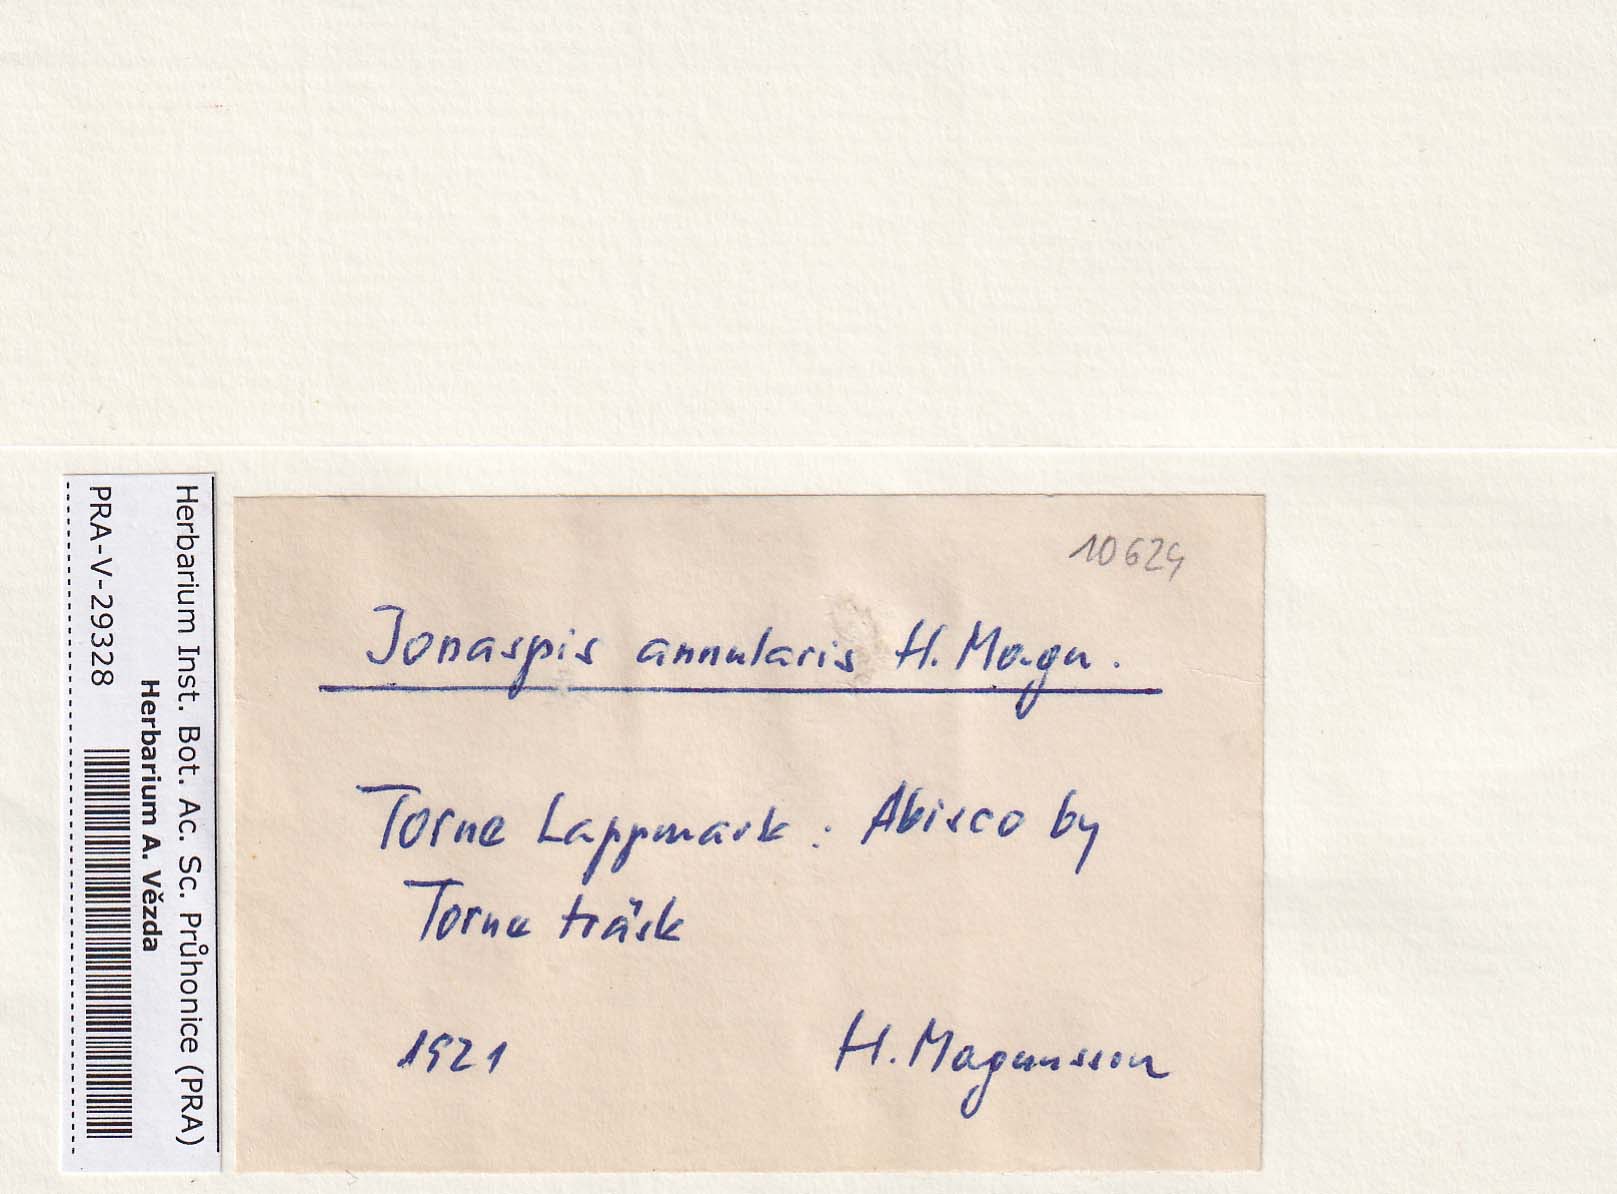 Herbarium Inst. Bot. Ac. Sc. Průhonice (PRA)
Herbarium A. Vězda
PRA-V-29328
10624
Jonaspis annularis H. Magn.
Torne Lappmark : Abisco by
Torne träsk
1921
H. Magnusson